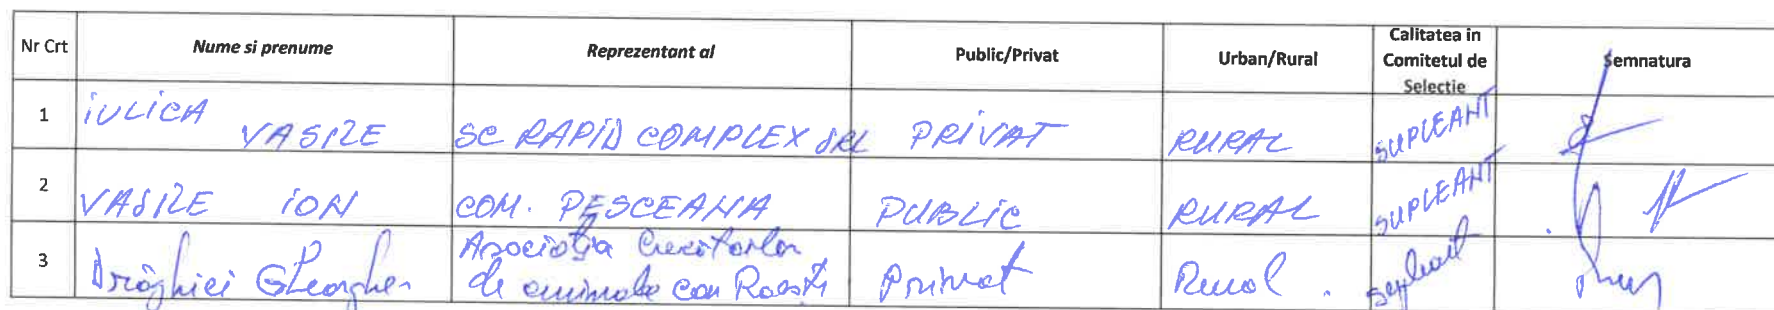 Nr Crt Nume si prenume Reprezentant al Public/Privat Urban/Rural Calitatea in Comitetul de Selectie Semnatura
1 IULICA VASILE SC RAPID COMPLEX SRL PRIVAT RURAL SUPLEANT
2 VASILE ION COM. PESCEANA PUBLIC RURAL SUPLEANT
3 Drăghici Gheorghe Asociația Crescatorilor de animale com Privat Rural supleant